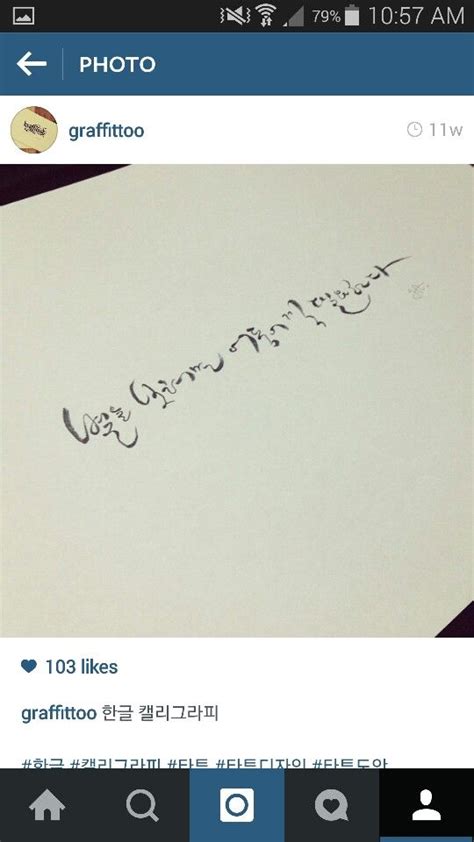 79% 10:57 AM
PHOTO
graffittoo
11w
별을 보려면 어둠이 꼭 필요하다
103 likes
graffittoo 한글 캘리그라피
#한글 #캘리그라피 #타투 #타투디자인 #타투도안